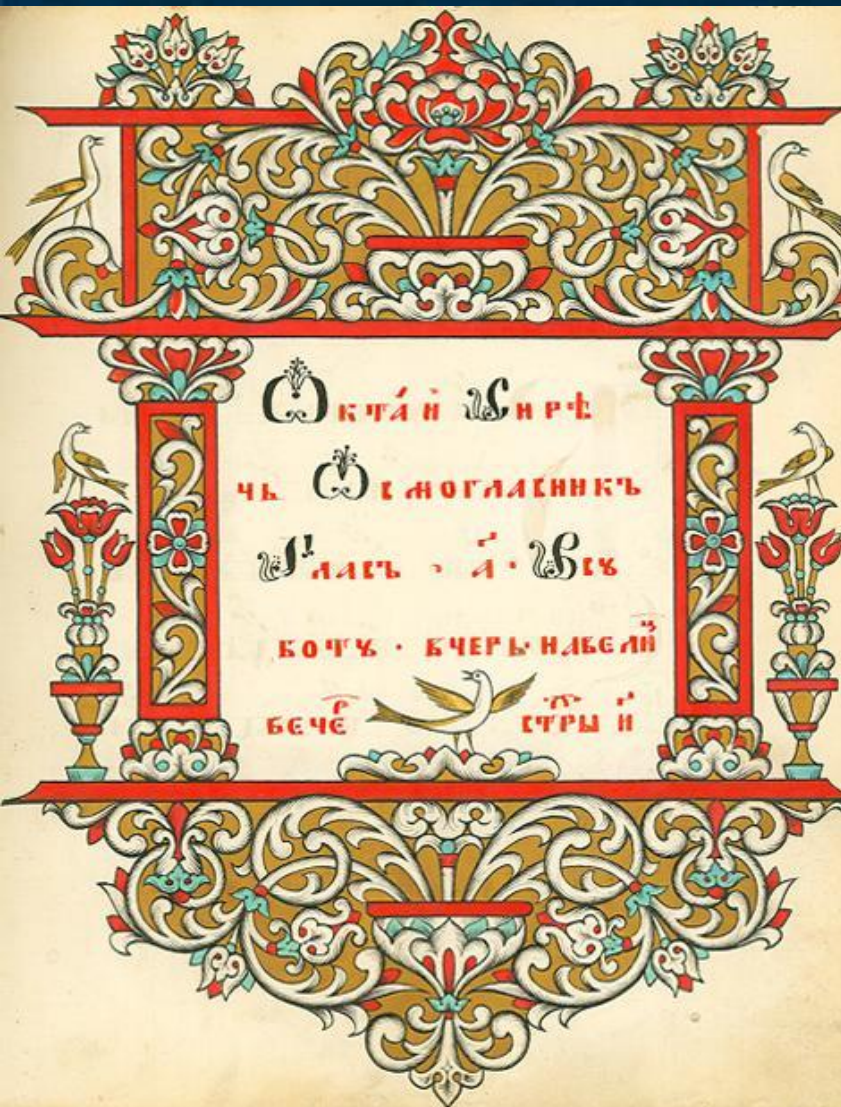 Ѡкта́й Сирѣ
чь Ѡсмогласникъ
Гласъ · а҃ · Всꙋ
ботꙋ · вчерь · навелиⷰ҇
вечеⷬ҇ стⷯры и҃